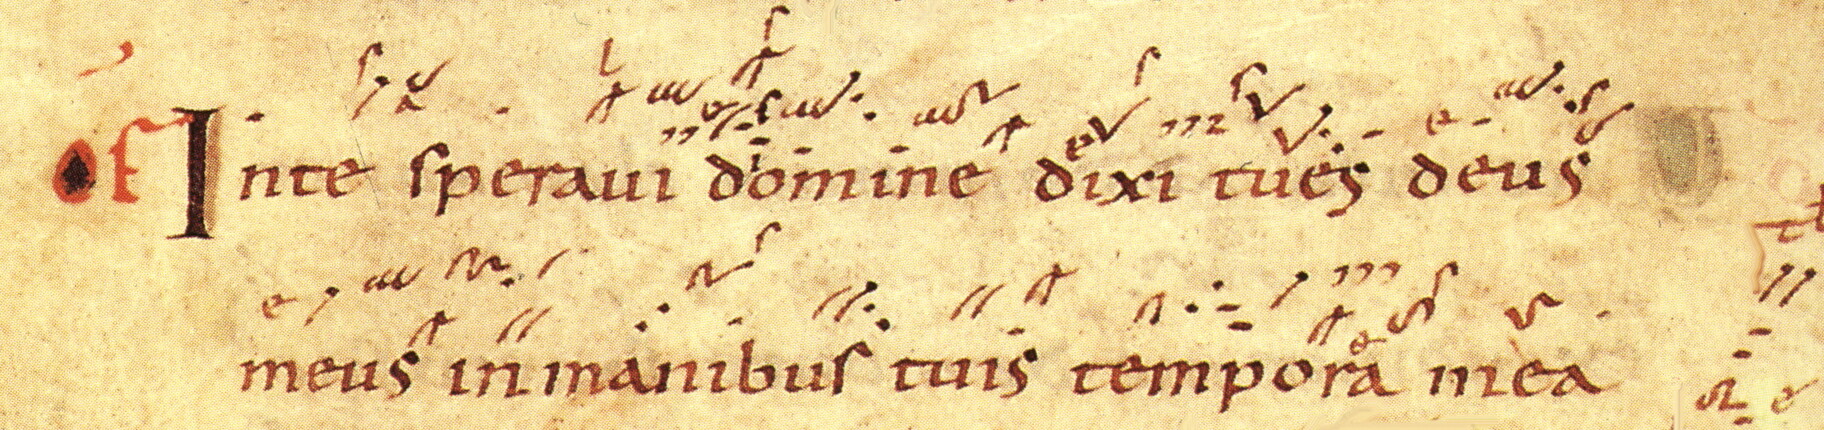 of In te speraui domine dixi tu es deus
meus in manibus tuis tempora mea